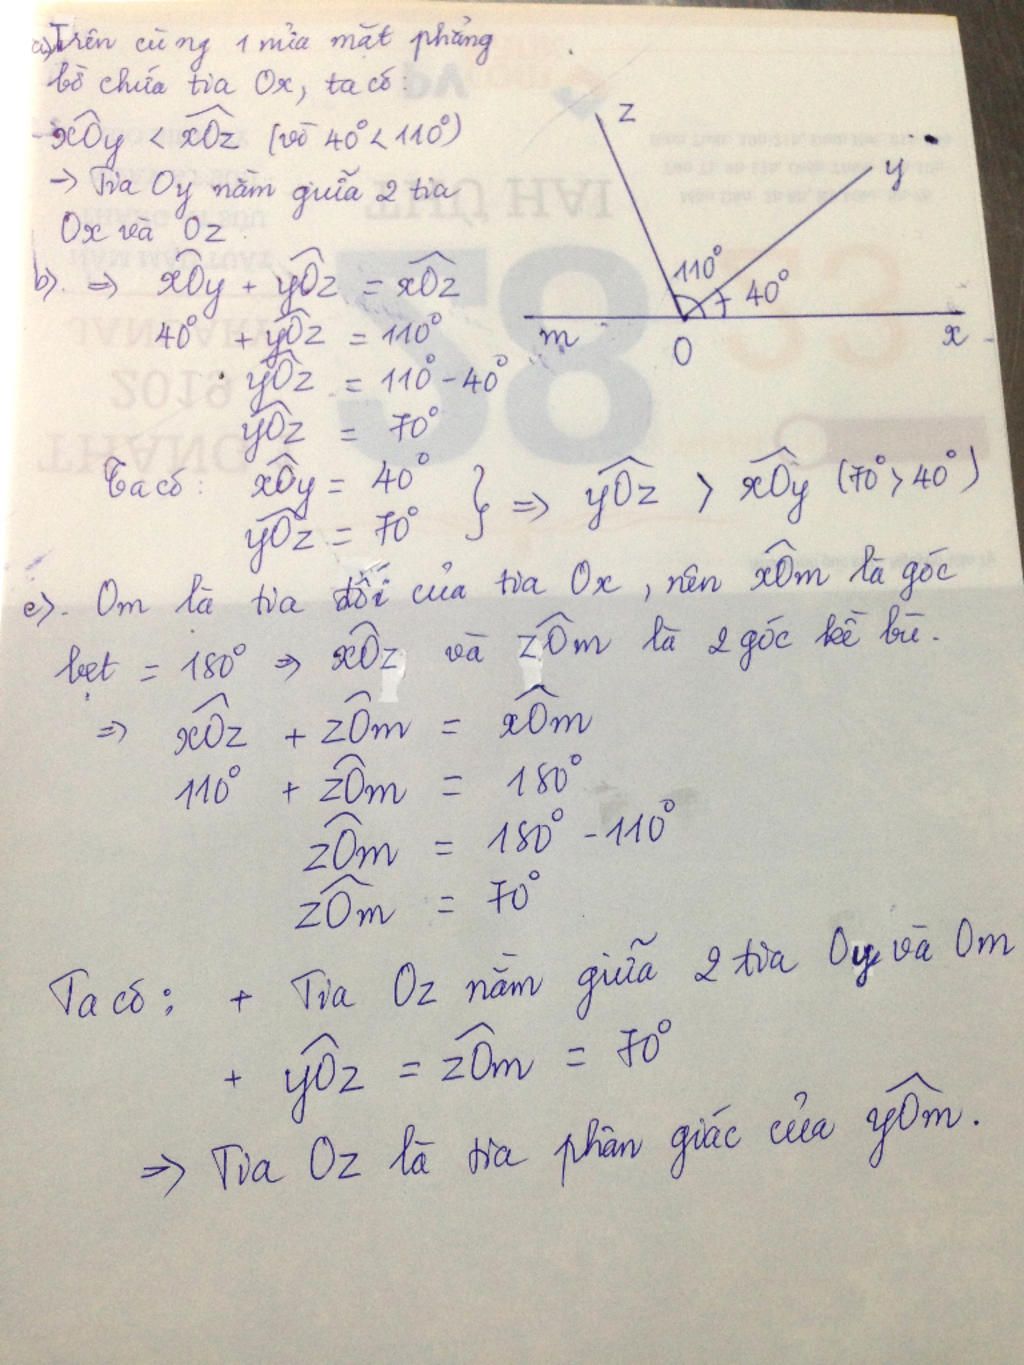 a) Trên cùng 1 nửa mặt phẳng
bờ chứa tia Ox, ta có:
xÔy < xÔz (vì 40° < 110°)
→ Tia Oy nằm giữa 2 tia
Ox và Oz
z
y
110°
40°
m
O
x
b). ⇒ xÔy + yÔz = xÔz
40° + yÔz = 110°
yÔz = 110° - 40°
yÔz = 70°
Ta có: xÔy = 40°
yÔz = 70° } ⇒ yÔz > xÔy (70° > 40°)
c). Om là tia đối của tia Ox, nên xÔm là góc
bẹt = 180° ⇒ xÔz và zÔm là 2 góc kề bù.
⇒ xÔz + zÔm = xÔm
110° + zÔm = 180°
zÔm = 180° - 110°
zÔm = 70°
Ta có: + Tia Oz nằm giữa 2 tia Oy và Om
+ yÔz = zÔm = 70°
⇒ Tia Oz là tia phân giác của yÔm.
THỨ HAI
28
2019
THÁNG